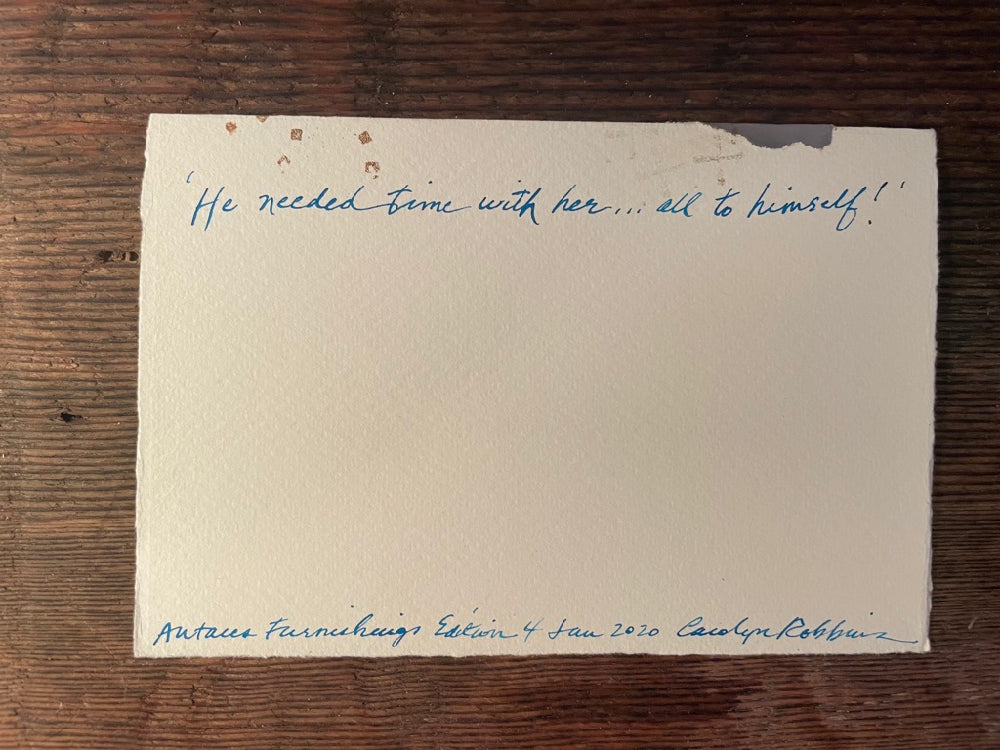 'He needed time with her... all to himself!'
Antaeus Furnishings Edition 4 Jan 2020 Carolyn Robbins